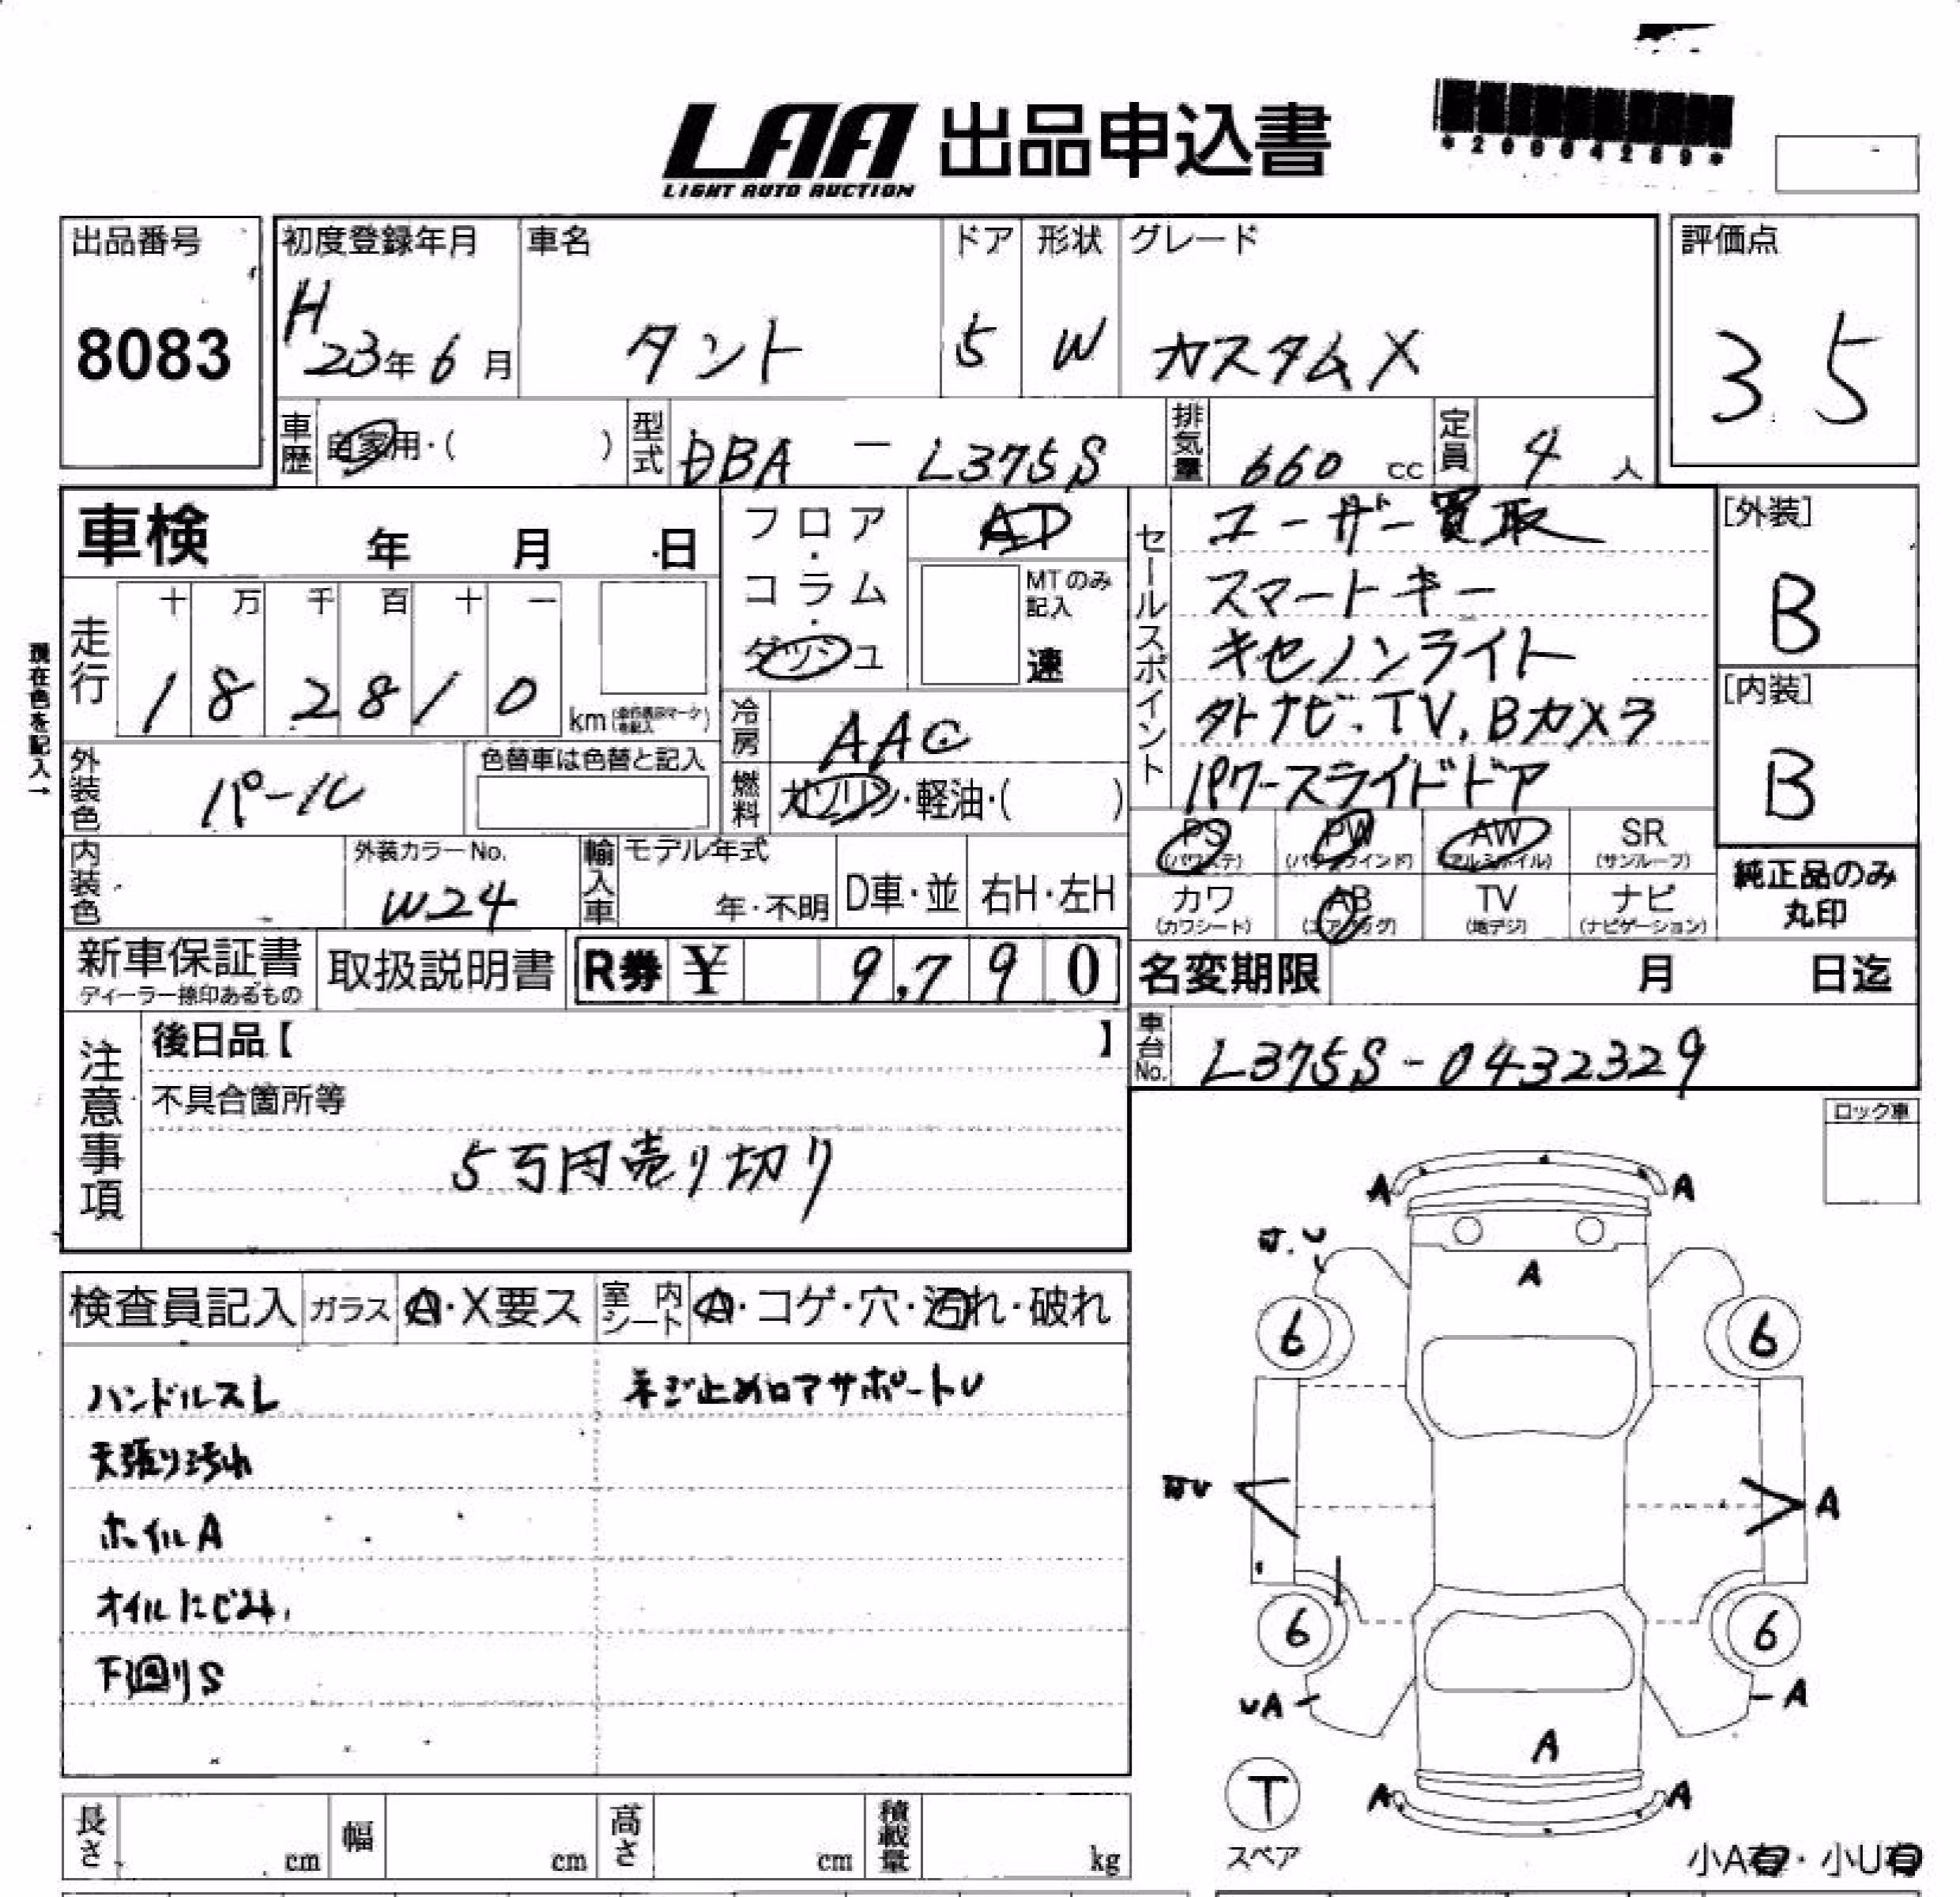 LAA 出品申込書
LIGHT AUTO AUCTION
*20004289*
出品番号
8083
初度登録年月
H
23年 6月
車名
タント
ドア
5
形状
W
グレード
カスタムX
評価点
3.5
車歴
自家用・( )
型式
DBA - L375S
排気量
660 cc
定員
4 人
車検 年 月 日
走行
十 万 千 百 十 一
1 8 2 8 1 0
km
現在色を記入→
フロア・コラム・ダッシュ
AT
MTのみ記入
速
冷房
AAC
燃料
ガソリン・軽油・( )
セールスポイント
ユーザー買取
スマートキー
キセノンライト
外ナビ.TV.Bカメラ
パワースライドドア
[外装]
B
[内装]
B
外装色
パール
色替車は色替と記入
内装色
外装カラーNo.
W24
輸入車
モデル年式
年・不明
D車・並
右H・左H
PS (パワステ)
PW (パワーウインド)
AW (アルミホイル)
SR (サンルーフ)
カワ (カワシート)
AB (エアバッグ)
TV (地デジ)
ナビ (ナビゲーション)
純正品のみ
丸印
新車保証書
ディーラー捺印あるもの
取扱説明書
R券 ¥ 9,790
名変期限 月 日迄
車台No.
L375S-0432329
注意事項
後日品【 】
不具合箇所等
5万円売り切り
ロック車
検査員記入
ガラス
A・X要ス
室内シート
A・コゲ・穴・汚れ・破れ
ハンドルスレ
ネジ止めロアサポートU
天張り汚れ
ホイルA
オイルにじみ
下回りS
A A
A
6 6
A
6 6
UA A
A
A A
T
スペア
小A有・小U有
長さ cm
幅 cm
高さ cm
積載量 kg